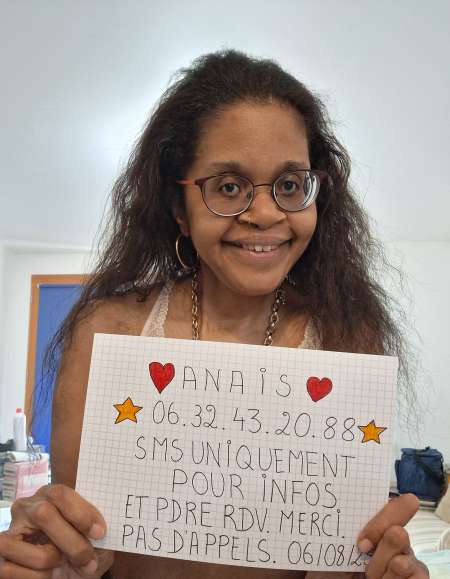 ANAÏS
06.32.43.20.88
SMS UNIQUEMENT
POUR INFOS
ET PDRE RDV. MERCI.
PAS D'APPELS. 06/08/2